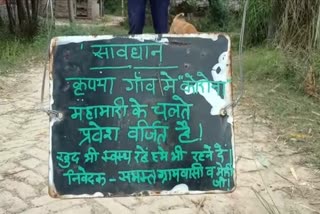 सावधान
कृपया गाँव में "कोरोना
महामारी के चलते
प्रवेश वर्जित है।
खुद भी स्वस्थ रहें हमें भी रहने दें
निवेदक - समस्त ग्रामवासी व